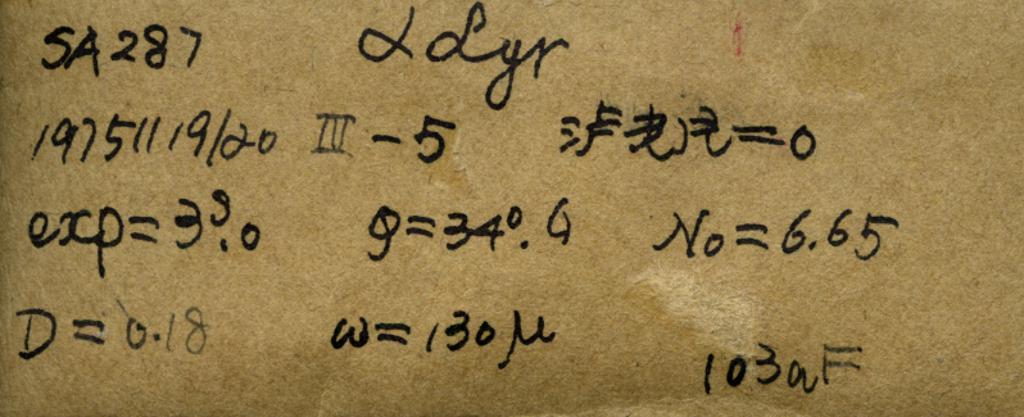 SA287 α Lyr 1
19751119/20 III-5 沪光片=0
exp=3ˢ.0 φ=34°.6 No=6.65
D=0.18 ω=130μ
103aF